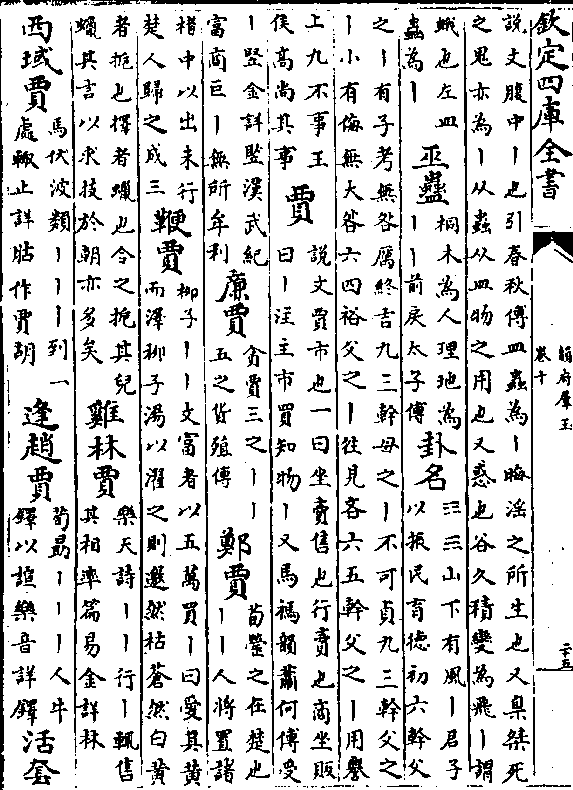 欽定四庫全書
韻府羣玉
卷十
二十五
說文腹中丨也引春秋傳皿蟲為丨晦淫之所生也又臬桀死
之鬼亦為丨从蟲从皿物之用也又惑也谷久積變為飛丨謂
蛾也左皿
蟲為丨
巫蠱
桐木為人理地為
丨丨前戾太子傳
卦名
三三山下有風丨君子
以振民育德初六幹父
之丨有子考無咎厲終吉九三幹母之丨不可貞九三幹父之
丨小有悔無大咎六四裕父之丨往見吝六五幹父之丨用譽
上九不事王
侯高尚其事
賈
說文賈市也一曰坐賣售也行賣也商坐販
曰丨注主市買知物丨又馬禡韻蕭何傳受
丨豎金詳監漢武紀
富商巨丨無所牟利
廉賈
貪賈三之丨丨
五之貨殖傳
鄭賈
荀罃之在楚也
丨丨人將置諸
褚中以出未行
楚人歸之成三
鞭賈
柳子丨丨文富者以五萬買丨曰愛其黄
而澤柳子湯以濯之則遬然枯蒼然白黄
者梔也擇者蠟也今之梔其皃
蠟其言以求技於朝亦多矣
雞林賈
樂天詩丨丨行丨輒售
其相率篇易金詳林
西域賈
馬伏波類丨丨丨到一
處輒止詳作賈胡
逢趙賈
荀勗丨丨丨人牛
鐸以諧樂音詳鐸
活套